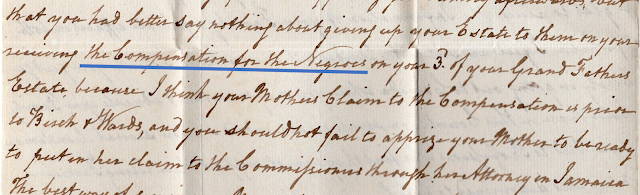 that you had better say nothing about giving up your Estate to them on your
receiving the Compensation for the Negroes on your 3.d of your Grand Fathers
Estate, because I think your Mothers Claim to the Compensation is prior
to Birch & Wards, and you should not fail to apprize your Mother to be ready
to put in her claim to the Commissioners through her Attorney in Jamaica
The best way of